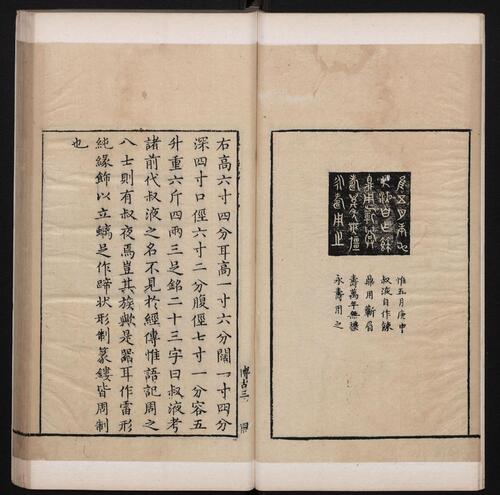 惟五月庚申
叔液自作餗
鼎用蘄眉
壽萬年無疆
永壽用之
右高六寸四分耳高一寸六分闊一寸四分
深四寸口徑六寸二分腹徑七寸一分容五
升重六斤四兩三足銘二十三字曰叔液考
諸前代叔液之名不見於經傳惟語記周之
八士則有叔夜焉豈其族歟是器耳作雷形
純緣飾以立螭足作蹄状形制篆鏤皆周制
也
博古三